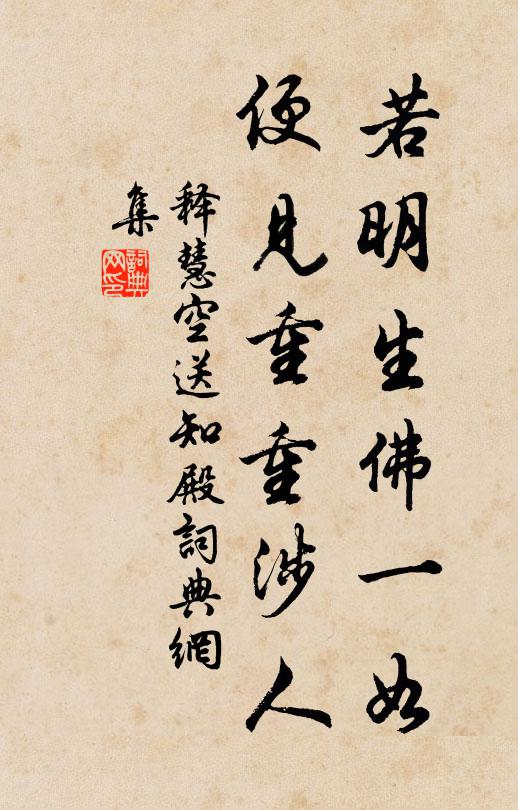 若明生佛一如
便見重重涉人
釋慧空送知殿詞典網
集
詞典
网印